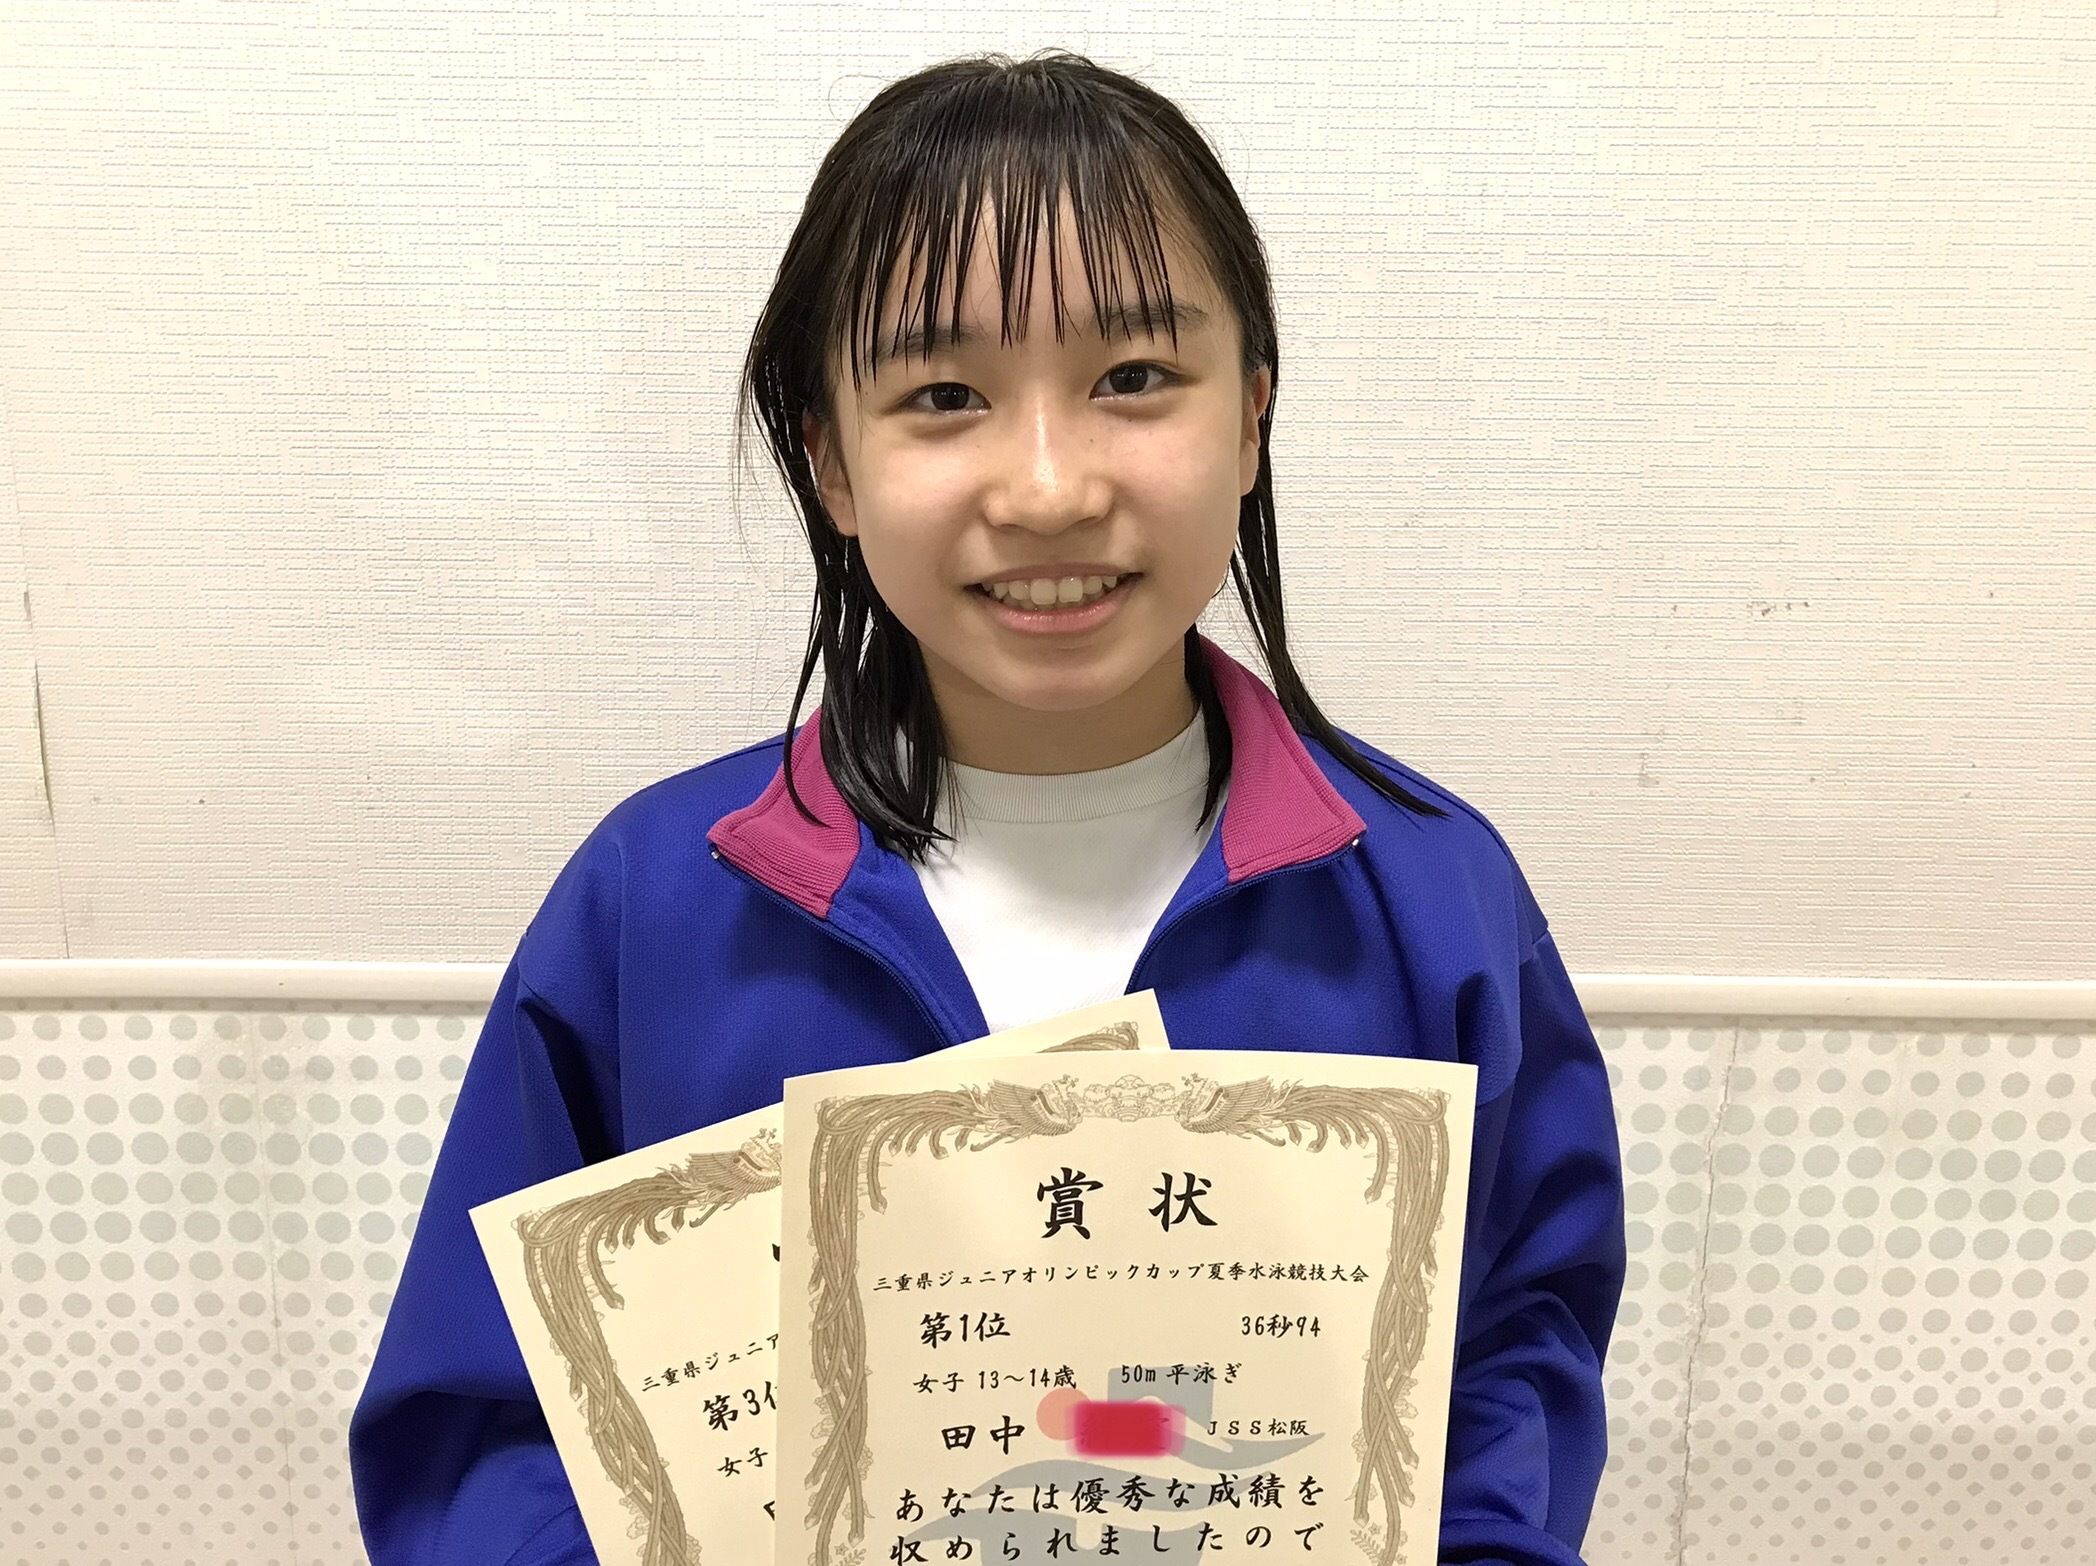 三重県ジュニア
第3位
女子
賞状
三重県ジュニアオリンピックカップ夏季水泳競技大会
第1位 36秒94
女子 13～14歳 50m 平泳ぎ
田中 JSS松阪
あなたは優秀な成績を
収められましたので